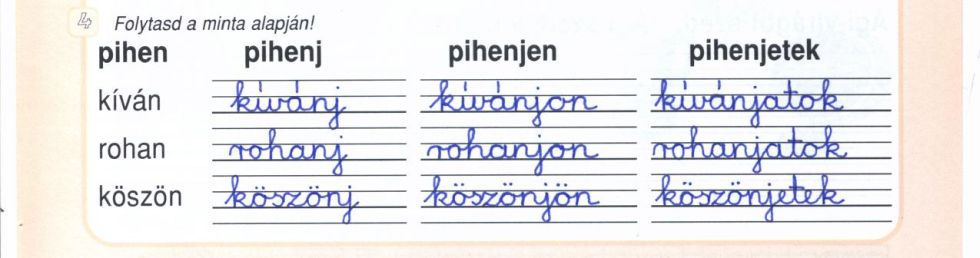 4 Folytasd a minta alapján!
pihen pihenj pihenjen pihenjetek
kíván kívánj kívánjon kívánjatok
rohan rohanj rohanjon rohanjatok
köszön köszönj köszönjön köszönjetek